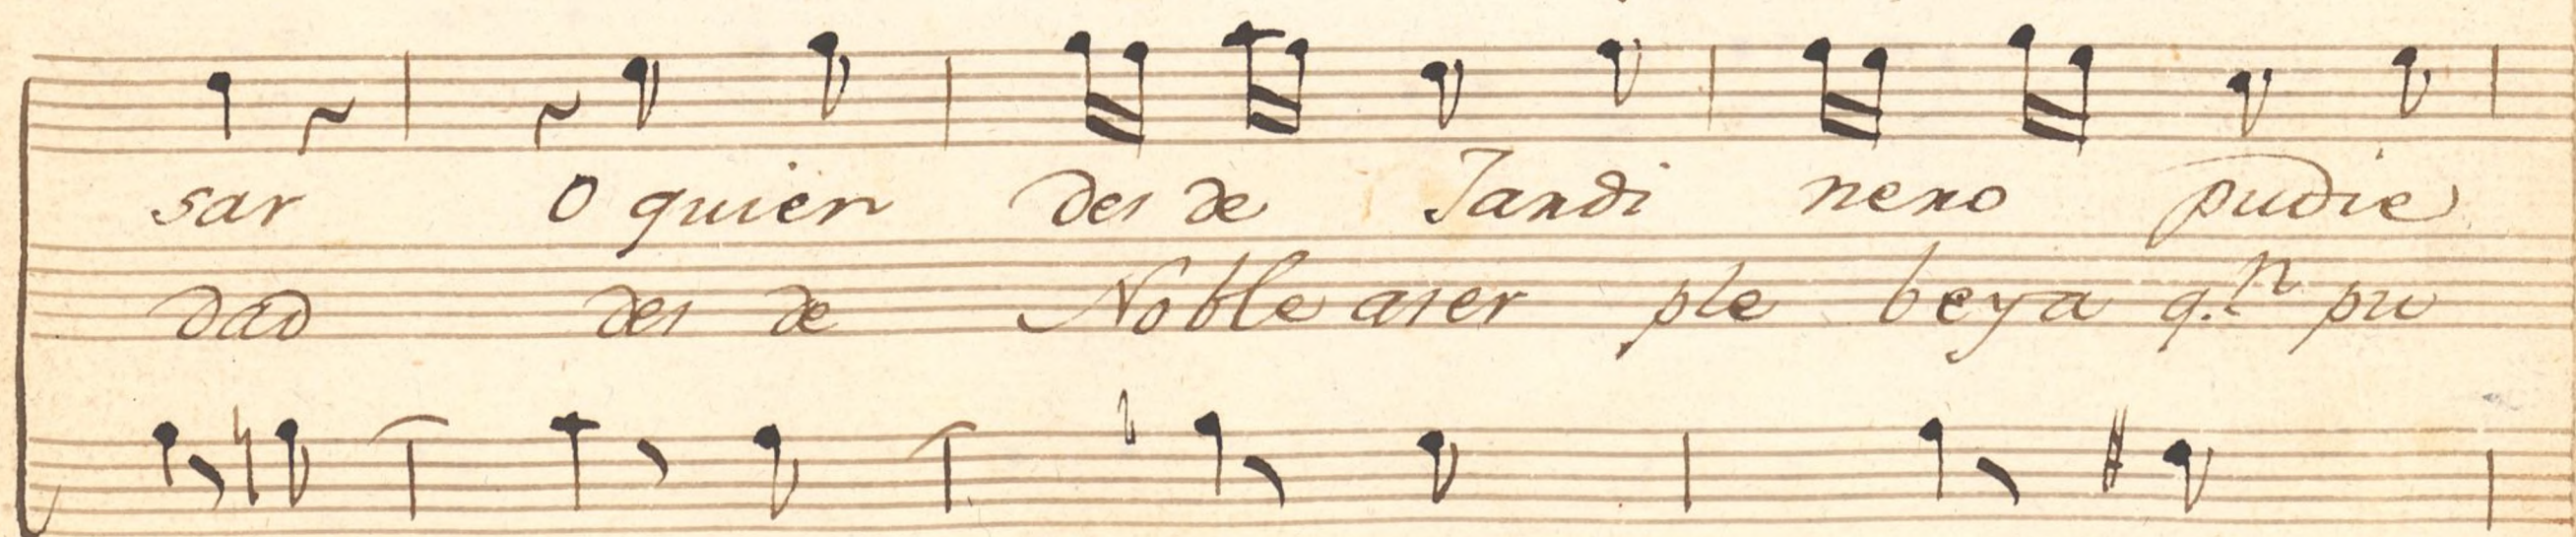 sar O quien des de Jardi nero pudie
dad des de Noble aser ple beya q.n pu